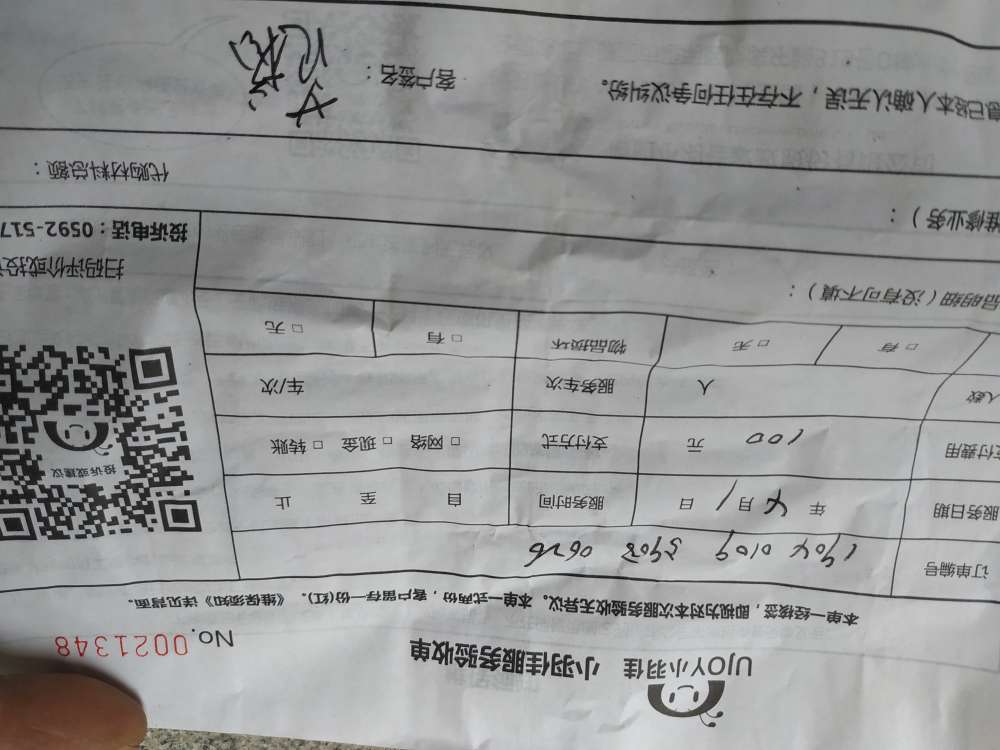 UJOY小羽佳 小羽佳服务验收单
No.0021348
本单一经核签，即视为对本次服务验收无异议。本单一式两份，客户留存一份(红)。《维保须知》详见背面。
订单编号 1904 0109 3903 0626
服务日期 年 4 月 1 日 服务时间 自 至 止
支付费用 100 元 支付方式 □ 网络 □ 现金 □ 转账
人数 人 服务车次 车/次
□ 有 □ 无 物品损坏 □ 有 □ 无
投诉或建议
扫码评价或投
投诉电话：0592-517
品明细（没有可不填）：
维修业务）：
代购材料总额：
息已经本人确认无误，不存在任何争议纠纷。 客户签名：